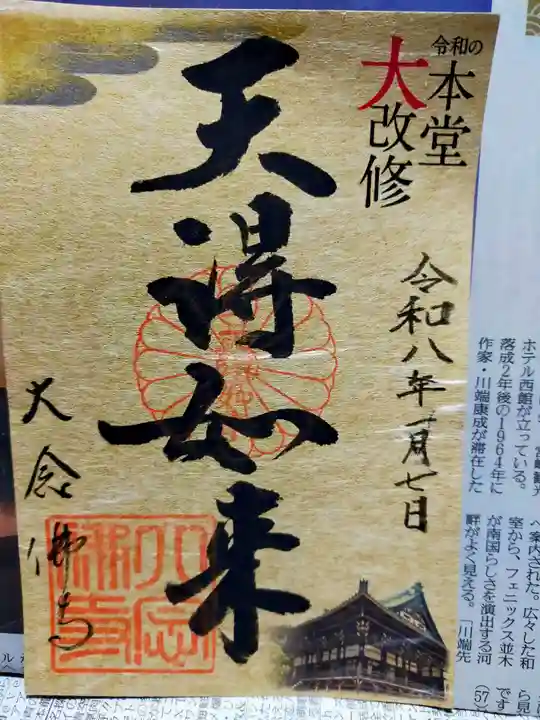 令和の
本堂
大改修
令和八年一月七日
天得如来
大念佛寺
ホテル西館が立っている。
落成2年後の1964年に
作家・川端康成が滞在した
へ案内された。広々した和
室から、フェニックス並木
が南国らしさを演出する河
畔がよく見える。「川端先
ら見
です
(57)